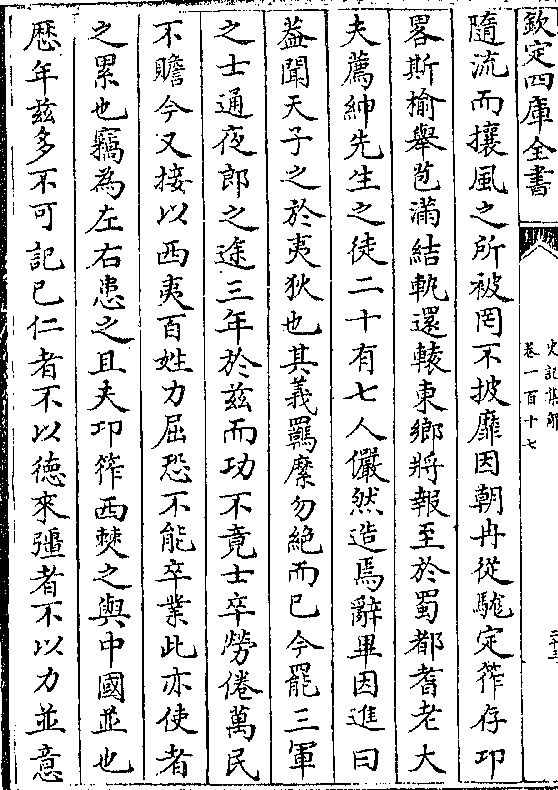 欽定四庫全書
史記集解
卷一百十七
三十三
隨流而攘風之所被罔不披靡因朝冉從駹定筰存卭
畧斯榆舉苞滿結軌還轅東鄉將報至於蜀都耆老大
夫薦紳先生之徒二十有七人儼然造焉辭畢因進曰
葢聞天子之於夷狄也其義羈縻勿絶而已今罷三軍
之士通夜郎之途三年於兹而功不竟士卒勞倦萬民
不贍今又接以西夷百姓力屈恐不能卒業此亦使者
之累也竊為左右患之且夫卭筰西僰之與中國並也
歴年兹多不可記已仁者不以德來彊者不以力並意